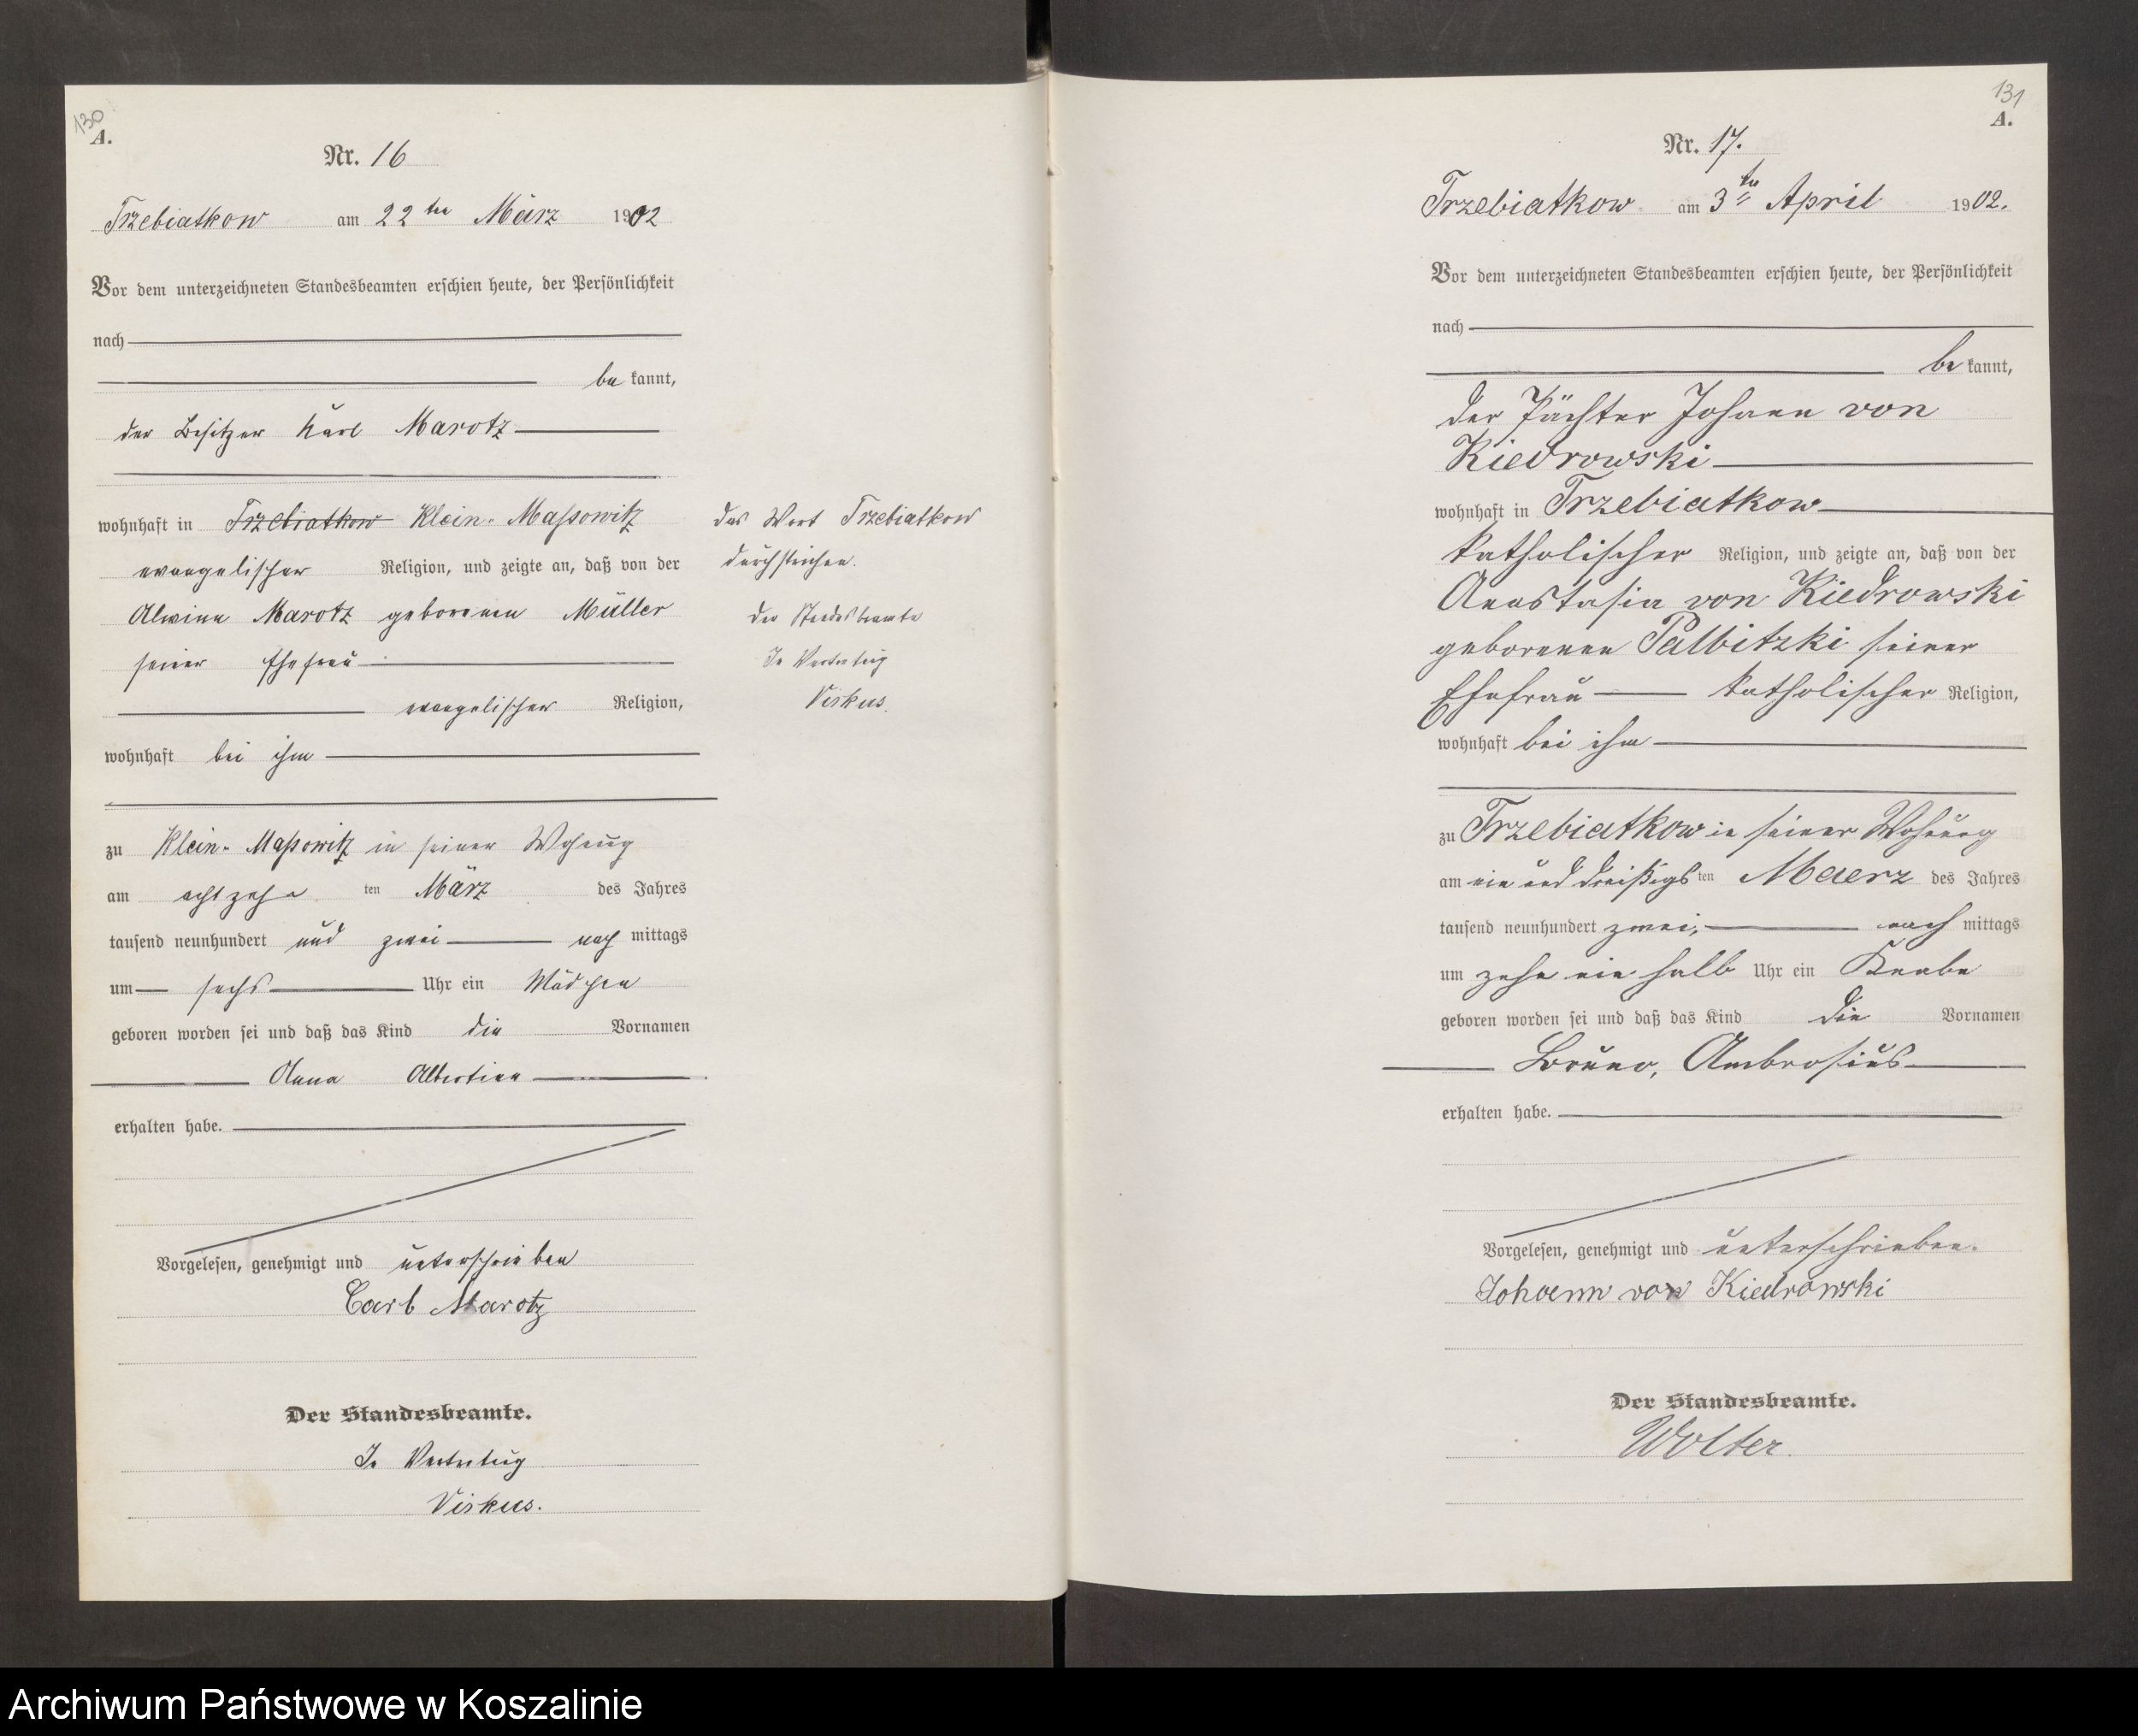 130
A.
Nr. 16
Trzebiatkow am 22ten März 1902
Vor dem unterzeichneten Standesbeamten erschien heute, der Persönlichkeit
nach
be kannt,
der Besitzer Karl Marotz
wohnhaft in Trzebiatkow Klein-Massowitz
evangelischer Religion, und zeigte an, daß von der
Alwine Marotz geborenen Müller
seiner Ehefrau
evangelischer Religion,
wohnhaft bei ihm
zu Klein-Massowitz in seiner Wohnung
am achtzehn ten März des Jahres
tausend neunhundert und zwei nach mittags
um sechs Uhr ein Mädchen
geboren worden sei und daß das Kind die Vornamen
Anna Albertine
erhalten habe.
Vorgelesen, genehmigt und unterschrieben
Carl Marotz
Der Standesbeamte.
In Vertretung
Viskus.
das Wort Trzebiatkow
durchstrichen.
der Standesbeamte
In Vertretung
Viskus.
131
A.
Nr. 17.
Trzebiatkow am 3ten April 1902.
Vor dem unterzeichneten Standesbeamten erschien heute, der Persönlichkeit
nach
be kannt,
der Pächter Johann von
Kiedrowski
wohnhaft in Trzebiatkow
katholischer Religion, und zeigte an, daß von der
Anastasia von Kiedrowski
geborenen Palbitzki seiner
Ehefrau katholischer Religion,
wohnhaft bei ihm
zu Trzebiatkow in seiner Wohnung
am ein und dreißigs ten Maerz des Jahres
tausend neunhundert zwei, nach mittags
um zehn ein halb Uhr ein Knabe
geboren worden sei und daß das Kind die Vornamen
Bruno, Ambrosius
erhalten habe.
Vorgelesen, genehmigt und unterschrieben.
Johann von Kiedrowski
Der Standesbeamte.
Wolter.
Archiwum Państwowe w Koszalinie